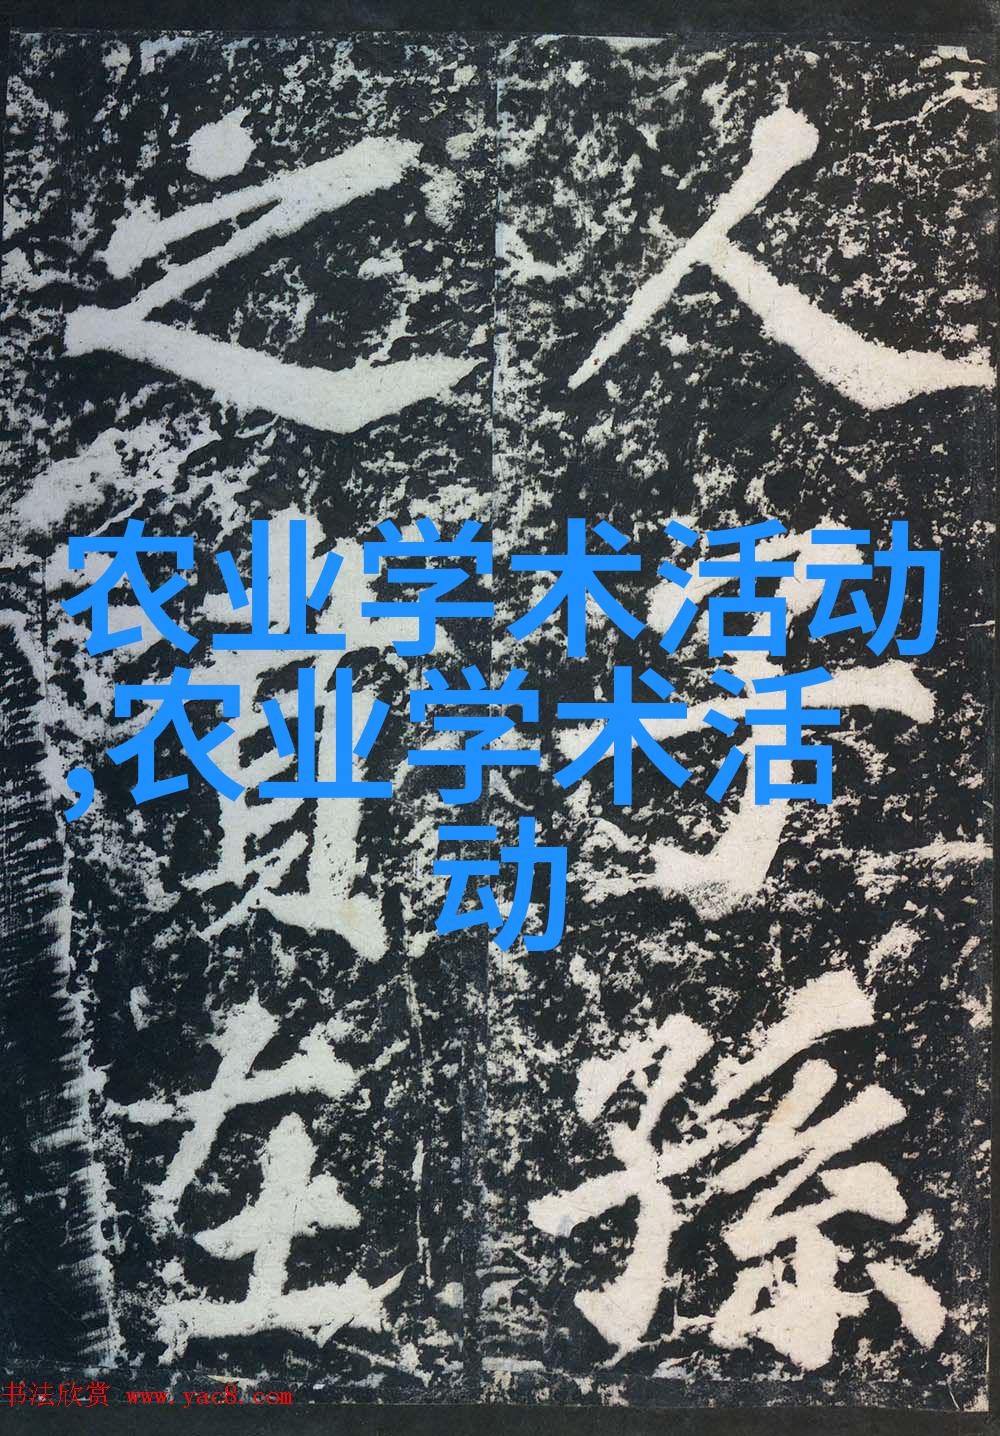 人子孫
之在
农业学术活动
,农业学术活
动
书法欣赏 www.yac8.com